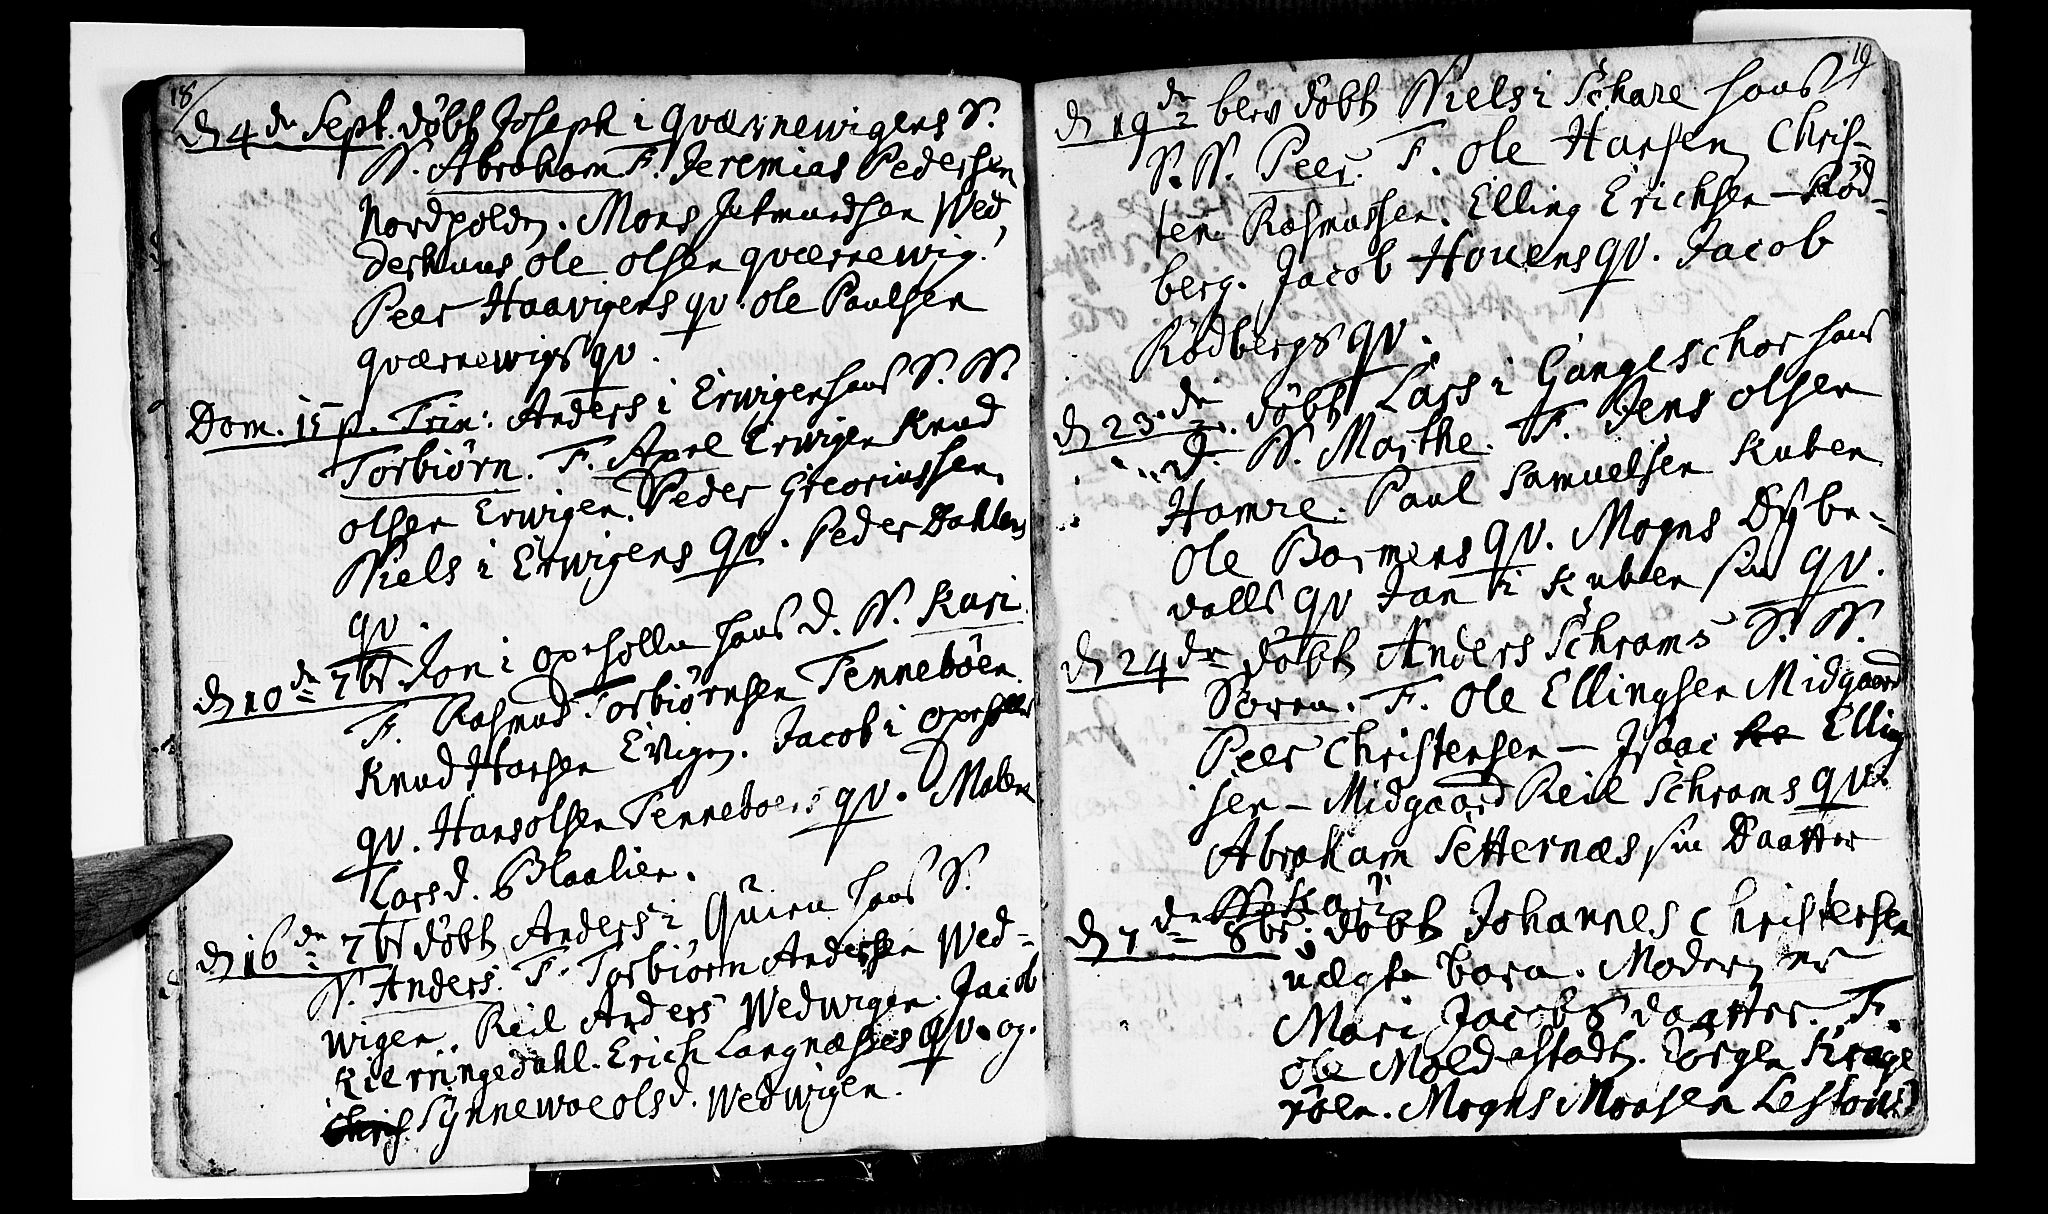 18
d 4de Sept. døbt Joseph i Qværnewigens S.
N. Abraham F. Jeremias Pedersen
Nordpolden. Mons Jetmundsen Wed
derhuus, ole olsen qværnewig.
Peer Haavigens qv. ole Paulsen
qværnewigs qv.
Dom. 15 p. Trin: Anders i Erwigen hans S. N.
Torbiørn. F. Axel Erwigen Knud
olsen Erwigen. Peder Greoriussen
Niels i Erwigens qv. Peder Dahlens
qv.
d 10de 7br Jon i opshollen hans d. N. Kari
F. Rasmus Torbiørnsen Tennebøen
Knud Hansen Evigen. Jacob i opshollen
qv. Hans olsen Tenneboens qv. Malene
Lars d. Blaalien.
d 16de 7br døbt Anders i Quien hans S.
N. Anders. F. Torbiørn Andersen Wed-
wigen. Reil Anders Wedwigen. Jacob
Kierringedahl. Erich Langnæsses qv. og
Synnewoe ols d. Wedwigen.
19
d 19de blev døbt Niels i Schare hans
S. N. Peer. F. ole Hansen Chris-
ten Rasmussen. Elling Erichsen - Rød-
berg. Jacob Hovens qv. Jacob
Rødbergs qv.
d 23de døbt Lars i Gangeschor hans
d. N. Marthe. F. Jens olsen
Hamre. Paul Samuelsen Kuben
Ole Barmens qv. Mogns Dybe-
dalls qv Jan i Kuben sin qv.
d 24de døbt Anders Schrams S. N.
Søren. F. Ole Ellingsen Midgaard
Peer Christensen - Isaac Elling
sen - Midgaard Reil Schrams qv.
Abraham Setternæs sin Daatter
N. Kari
d 7de 8br. døbt Johannes Christensen
uægte barn. Moderen er
Mari Jacobs daatter. F.
ole Moldestadt. Jørgen Krage
røen. Mogns Monsen Lestad